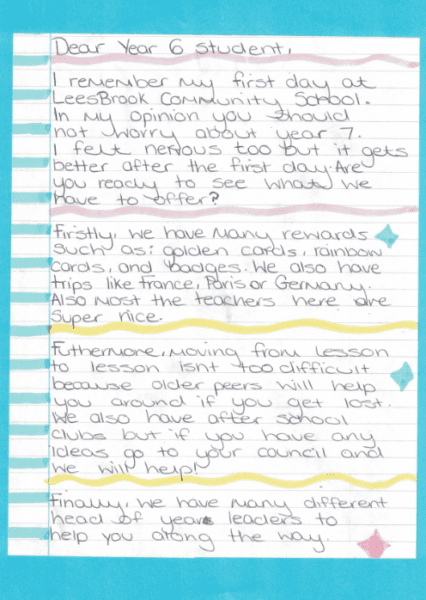 Dear Year 6 student,
I remember my first day at
LeesBrook Community School.
In my opinion you should
not worry about year 7.
I felt nervous too but it gets
better after the first day. Are
you ready to see what we
have to offer?
Firstly, we have many rewards
such as: golden cards, rainbow
cards, and badges. We also have
trips like France, Paris or Germany.
Also most the teachers here are
super nice.
Futhermore, moving from lesson
to lesson isnt too difficult
because older peers will help
you around if you get lost.
We also have after school
clubs but if you have any
ideas go to your council and
we will help!
Finally, we have many different
head of year leaders to
help you along the way.